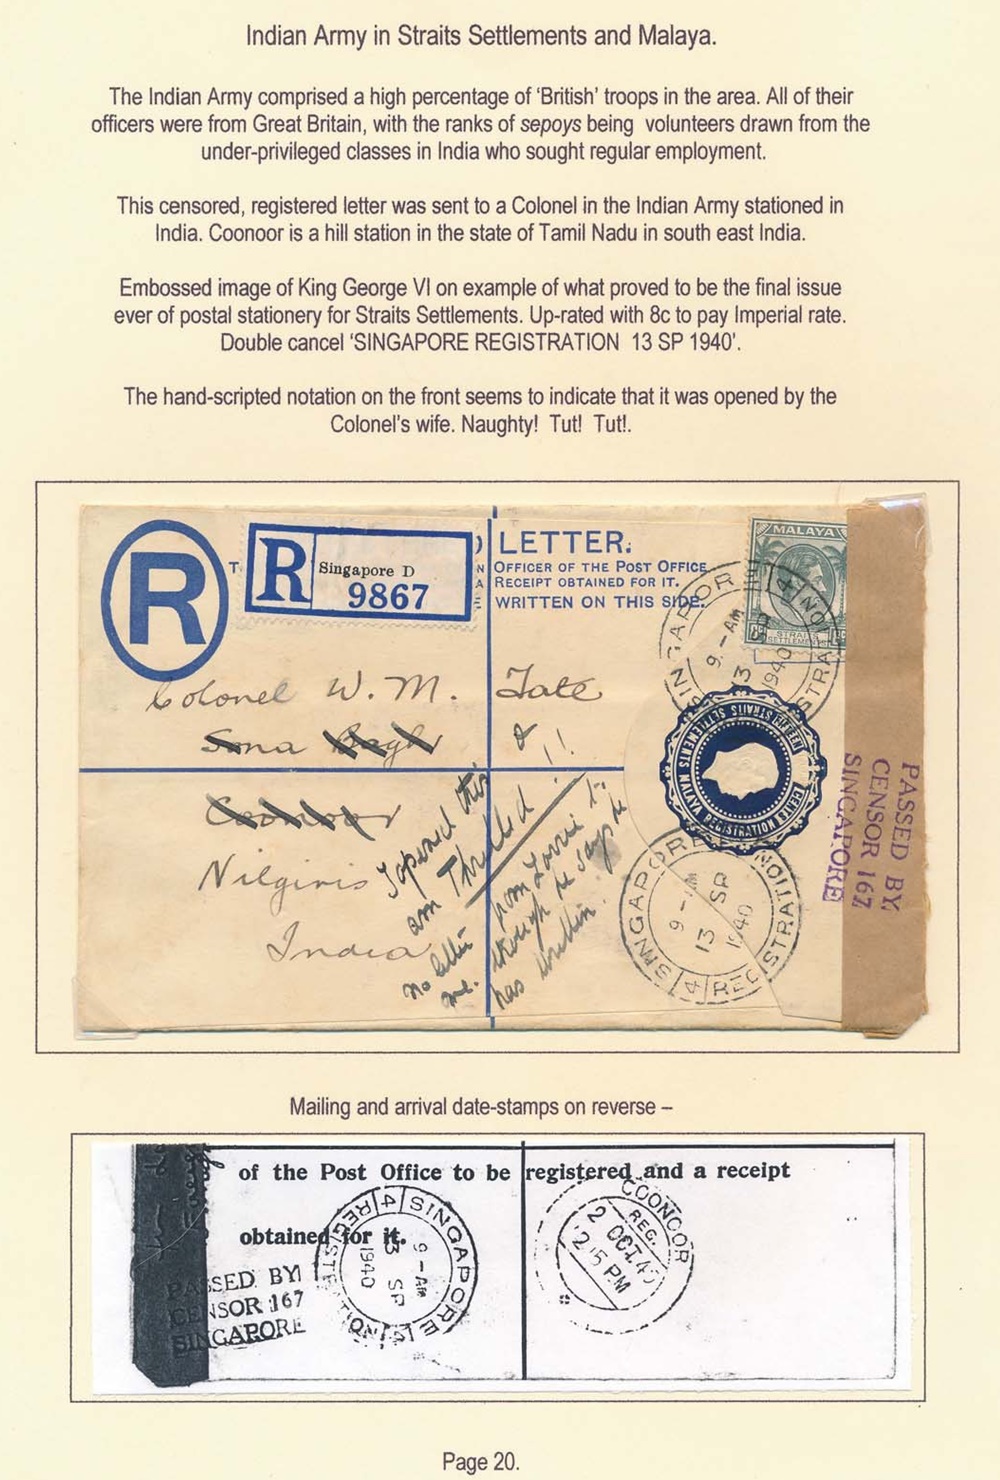 Indian Army in Straits Settlements and Malaya.
The Indian Army comprised a high percentage of 'British' troops in the area. All of their
officers were from Great Britain, with the ranks of sepoys being volunteers drawn from the
under-privileged classes in India who sought regular employment.
This censored, registered letter was sent to a Colonel in the Indian Army stationed in
India. Coonoor is a hill station in the state of Tamil Nadu in south east India.
Embossed image of King George VI on example of what proved to be the final issue
ever of postal stationery for Straits Settlements. Up-rated with 8c to pay Imperial rate.
Double cancel 'SINGAPORE REGISTRATION 13 SP 1940'.
The hand-scripted notation on the front seems to indicate that it was opened by the
Colonel's wife. Naughty! Tut! Tut!.
R
R
Singapore D
9867
LETTER.
OFFICER OF THE POST OFFICE
RECEIPT OBTAINED FOR IT.
WRITTEN ON THIS SIDE.
MALAYA
STRAITS
SETTLEMENTS
SINGAPORE
9-AM
13 SP
1940
REGISTRATION
4
STRAITS SETTLEMENTS MALAYA REGISTRATION
CENTS
Colonel W. M. Tate
Coonoor
Nilgiris
India
I opened this &
am Thrilled!!!
no letter from Lorrie to
me. though he says he
has written.
SINGAPORE
9-AM
13 SP
1940
4 REGISTRATION
PASSED BY
CENSOR 167
SINGAPORE
Mailing and arrival date-stamps on reverse –
of the Post Office to be registered and a receipt
obtained for it.
SINGAPORE
9-AM
13 SP
1940
4 REGISTRATION
COONOOR
REG.
2 OCT. 40
2.15 PM
PASSED BY
CENSOR 167
SINGAPORE
Page 20.